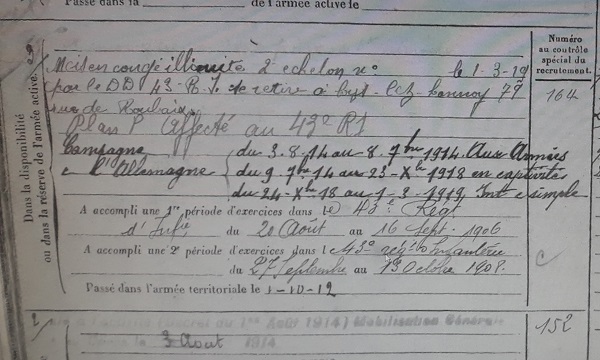 Passé dans la de l'armée active le
Numéro
au contrôle
spécial du
recrutement.
Dans la disponibilité
ou dans la réserve de l'armée active.
Mis en congé illimité 2e échelon no le 1-3-19
par le DD 43 R.I. se retire à Lys-lez-Lannoy 77
rue de Roubaix
164
Plan P Affecté au 43e RI
Campagne du 3.8.14 au 8.7bre 1914. Aux Armées
c l'Allemagne du 9.7bre 14 au 23-Xbre 1918 en captivité
du 24-Xbre 18 au 1-3-1919. Int. c simple
A accompli une 1re période d'exercices dans le 43e Régt
d'Infie du 20 Août au 16 Sept. 1906
A accompli une 2e période d'exercices dans le 43e régt Infanterie
du 27 Septembre au 13 Octobre 1908.
Passé dans l'armée territoriale le 1-10-12
C
Août 1914) Mobilisation Générale
152
3 Août 1914